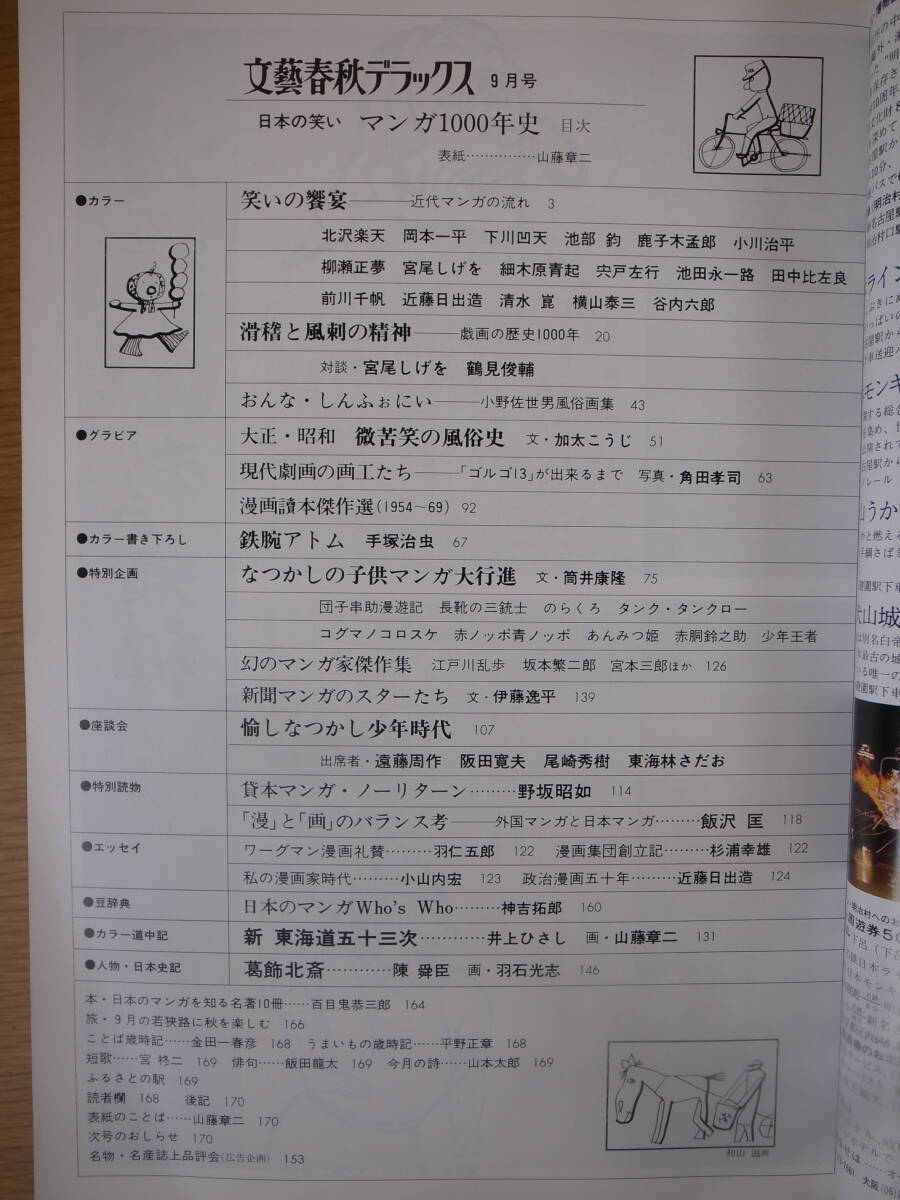 文藝春秋デラックス 9月号
日本の笑い マンガ1000年史 目次
表紙……………山藤章二
●カラー
笑いの饗宴――近代マンガの流れ 3
北沢楽天 岡本一平 下川凹天 池部 鈞 鹿子木孟郎 小川治平
柳瀬正夢 宮尾しげを 細木原青起 宍戸左行 池田永一路 田中比左良
前川千帆 近藤日出造 清水 崑 横山泰三 谷内六郎
滑稽と風刺の精神――戯画の歴史1000年 20
対談・宮尾しげを 鶴見俊輔
おんな・しんふぉにい――小野佐世男風俗画集 43
●グラビア
大正・昭和 微苦笑の風俗史 文・加太こうじ 51
現代劇画の画工たち――「ゴルゴ13」が出来るまで 写真・角田孝司 63
漫画讀本傑作選(1954〜69) 92
●カラー書き下ろし
鉄腕アトム 手塚治虫 67
●特別企画
なつかしの子供マンガ大行進 文・筒井康隆 75
団子串助漫遊記 長靴の三銃士 のらくろ タンク・タンクロー
コグマノコロスケ 赤ノッポ青ノッポ あんみつ姫 赤胴鈴之助 少年王者
幻のマンガ家傑作集 江戸川乱歩 坂本繁二郎 宮本三郎ほか 126
新聞マンガのスターたち 文・伊藤逸平 139
●座談会
愉しなつかし少年時代 107
出席者・遠藤周作 阪田寛夫 尾崎秀樹 東海林さだお
●特別読物
貸本マンガ・ノーリターン………野坂昭如 114
「漫」と「画」のバランス考――外国マンガと日本マンガ………飯沢 匡 118
●エッセイ
ワーグマン漫画礼賛………羽仁五郎 122 漫画集団創立記………杉浦幸雄 122
私の漫画家時代………小山内宏 123 政治漫画五十年………近藤日出造 124
●豆辞典
日本のマンガWho's Who………神吉拓郎 160
●カラー道中記
新 東海道五十三次…………井上ひさし 画・山藤章二 131
●人物・日本史記
葛飾北斎…………陳 舜臣 画・羽石光志 146
本・日本のマンガを知る名著10冊……百目鬼恭三郎 164
旅・9月の若狭路に秋を楽しむ 166
ことば歳時記……金田一春彦 168 うまいもの歳時記……平野正章 168
短歌……宮 柊二 169 俳句……飯田龍太 169 今月の詩……山本太郎 169
ふるさとの駅 169
読者欄 168 後記 170
表紙のことば……山藤章二 170
次号のおしらせ 170
名物・名産誌上品評会(広告企画) 153
初山 滋画